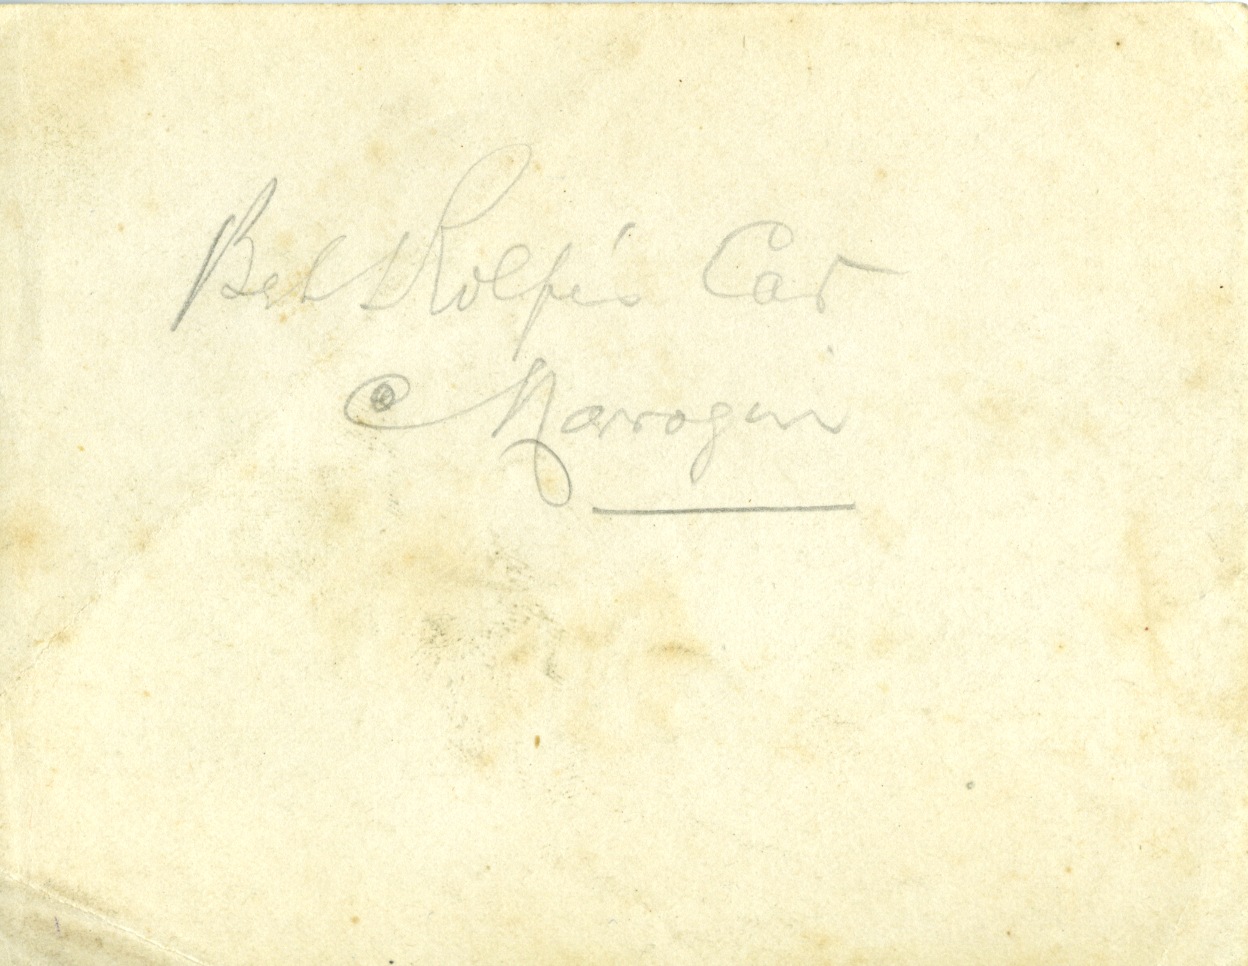 Rolfe's Car
Narrogin